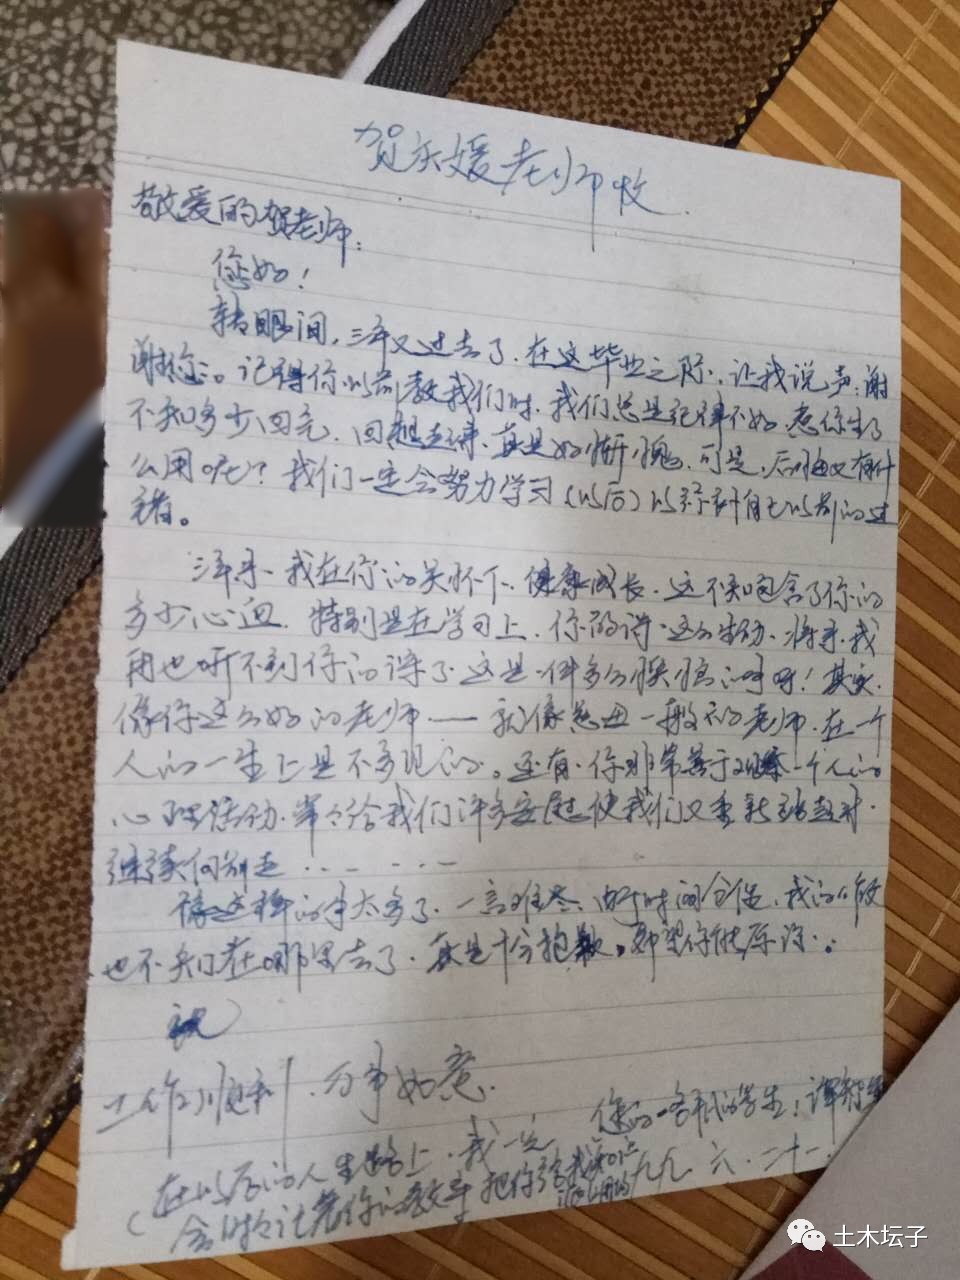 贺庆媛老师收
敬爱的贺老师：
您好！
转眼间，三年又过去了，在这毕业之际，让我说声：谢
谢您。记得你以前教我们时，我们总是纪律不好，惹你生了
不知多少回气，回想起来，真是好惭愧，可是，后悔又有什
么用呢？我们一定会努力学习（以后）以弥补自己以前的过
错。
三年来，我在你的关怀下，健康成长，这不知包含了你的
多少心血，特别是在学习上，你的课，这么生动，将来，我
再也听不到你的课了，这是一件多么惋惜的事啊！其实，
像你这么好的老师——就像慈母一般的老师，在一个
人的一生上是不多见的。还有，你非常善于观察一个人的
心理活动，常常给我们许多安慰使我们又重新站起来，
继续向前走……
像这样的事太多了，一言难尽，由于时间仓促，我的
也不知在哪里去了，真是十分抱歉。希望你能原谅。
祝
工作顺利，万事如意。
您的一名秘的学生：谭
九九．六．二十一．
（在以后的人生路上，我一定
会时时记着你的教导，把你给我